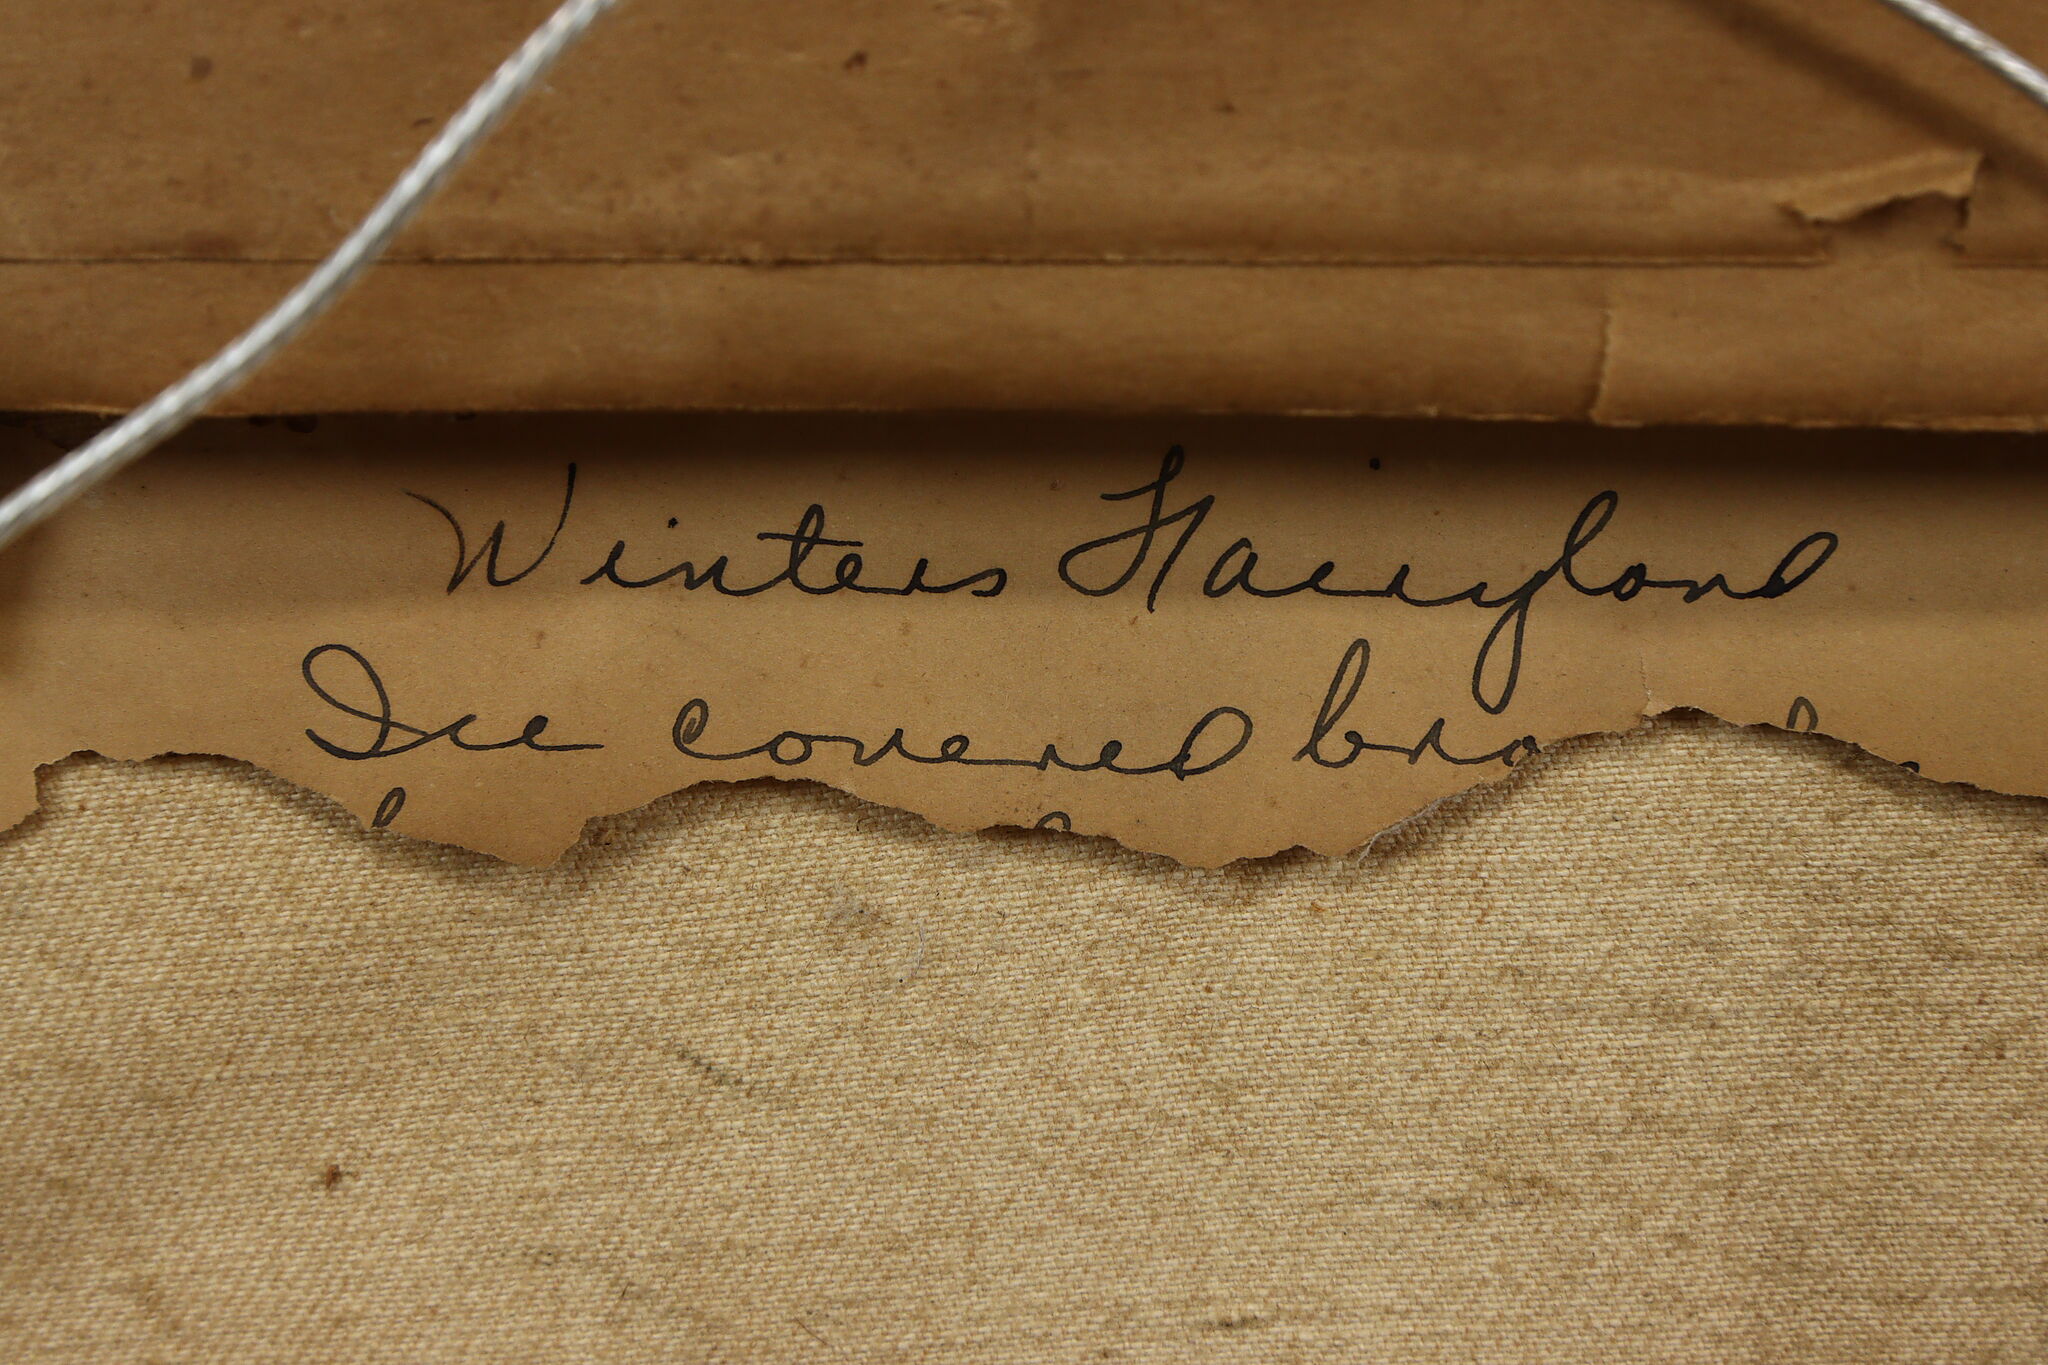 Winters Fairyland
Ice covered